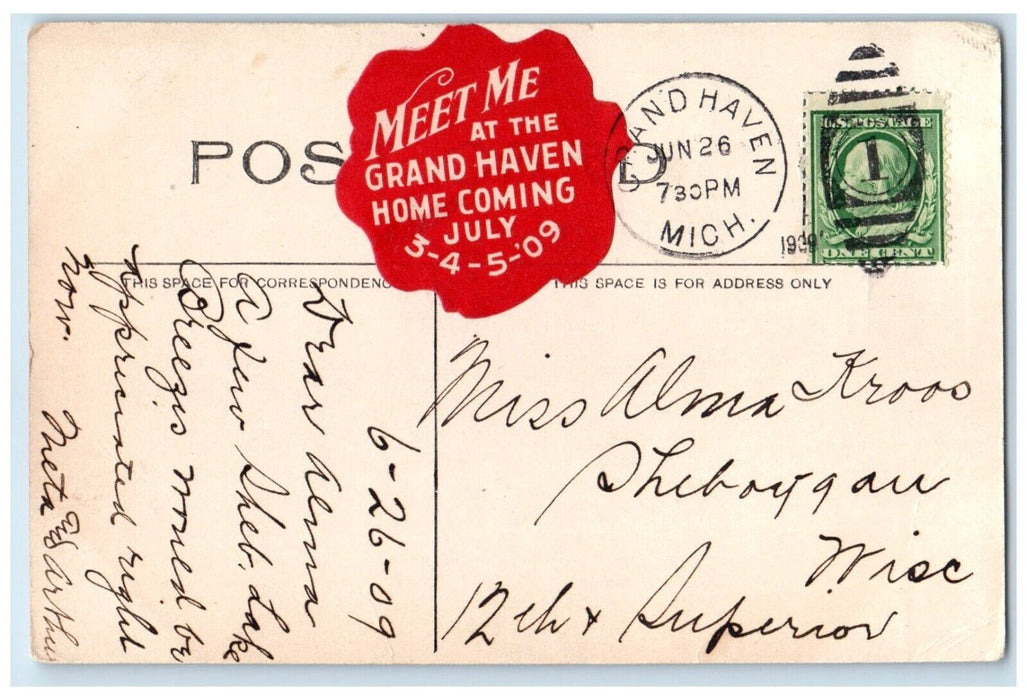 POS D
MEET ME
AT THE
GRAND HAVEN
HOME COMING
JULY
3-4-5-'09
GRAND HAVEN
JUN 26
730PM
MICH.
1909
U.S. POSTAGE
1
ONE CENT
THIS SPACE FOR CORRESPONDENC
THIS SPACE IS FOR ADDRESS ONLY
6-26-09
Dear Alma
A few Sheb. Lake
Breezis would be
appriciated right
now.
Meta & Arthu
Miss Alma Kroos
Sheboygan
Wisc
12th & Superior